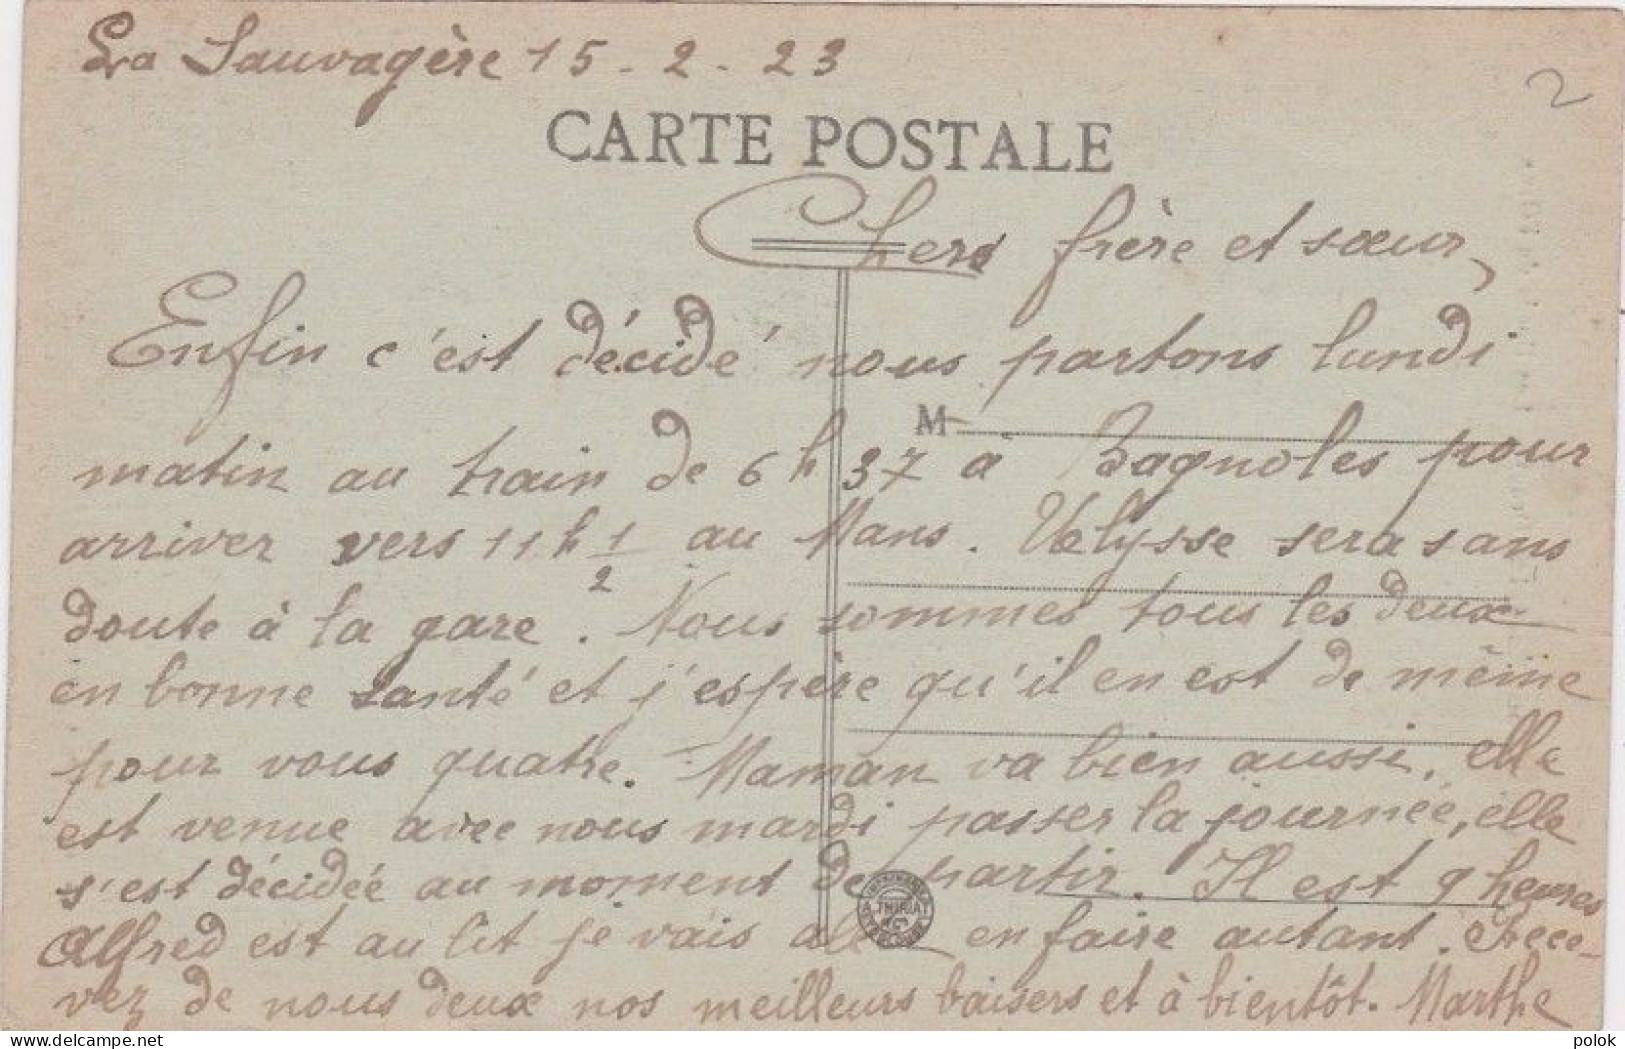 La Sauvagère 15 - 2 - 23
2
CARTE POSTALE
Chers frère et sœur,
Enfin c'est décidé nous partons lundi
M
matin au train de 6 h 37 à Bagnoles pour
arriver vers 11 h 1/2 au Mans. Ulysse sera sans
doute à la gare. Nous sommes tous les deux
en bonne santé et j'espère qu'il en est de même
pour vous quatre. Maman va bien aussi, elle
est venue avec nous mardi passer la journée, elle
s'est décidée au moment de partir. Il est 9 heures
A. THIRIAT
Alfred est au lit je vais aller en faire autant. Rece-
vez de nous deux nos meilleurs baisers et à bientôt. Marthe
delcampe.net
polok